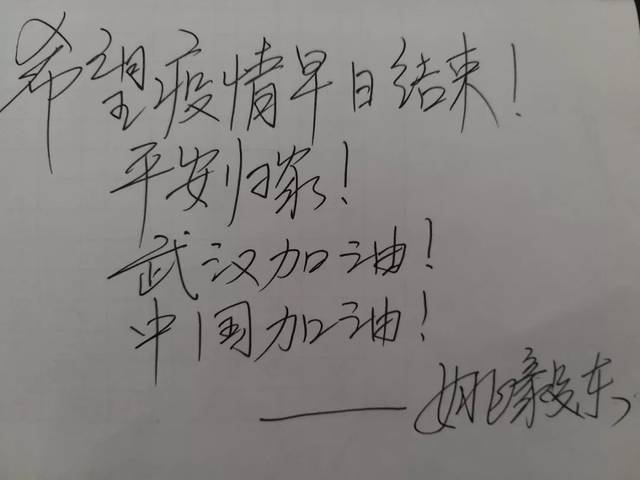 希望疫情早日结束！
平安归家！
武汉加油！
中国加油！
——姚毅东